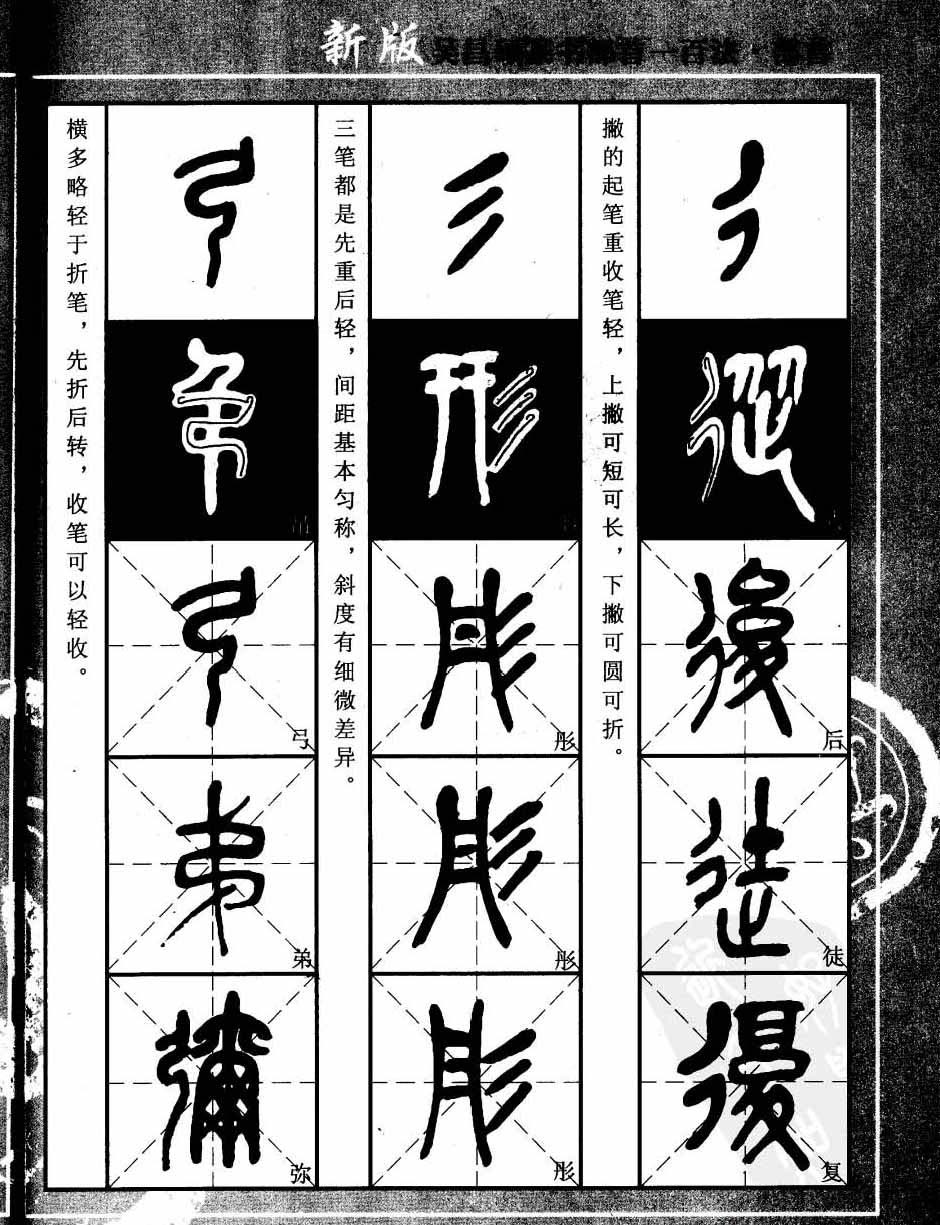 新版
撇的起笔重收笔轻，上撇可短可长，下撇可圆可折。
后
徒
复
三笔都是先重后轻，间距基本匀称，斜度有细微差异。
彤
彤
彤
横多略轻于折笔，先折后转，收笔可以轻收。
弓
弟
弥